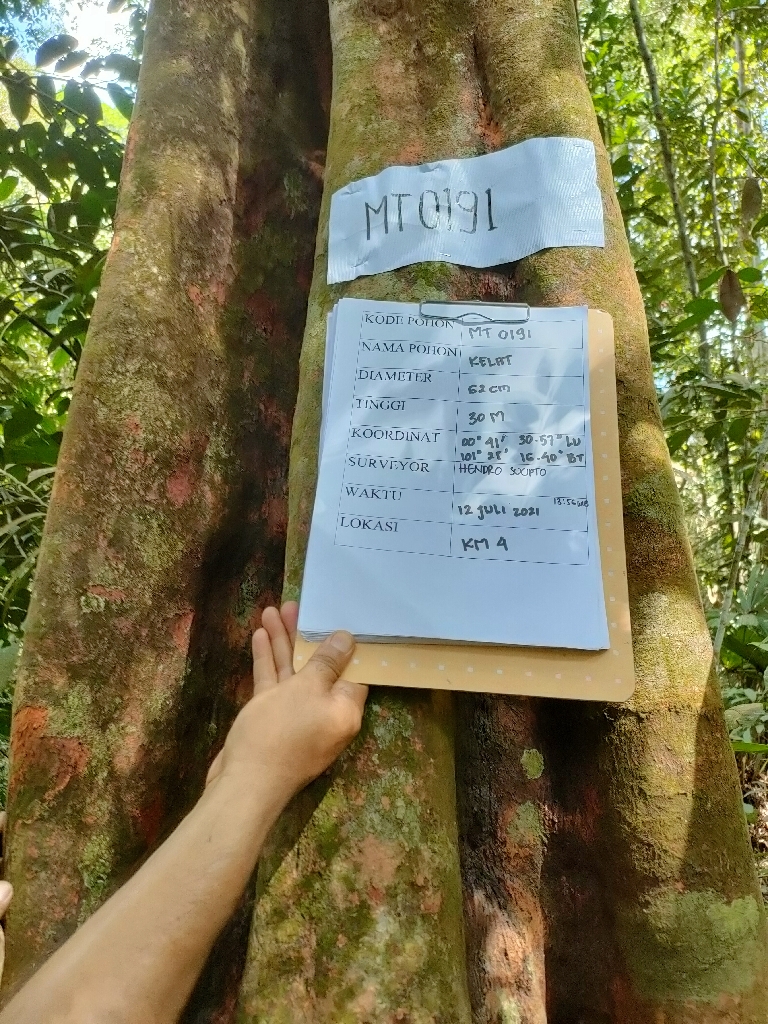 MT0191
KODE POHON MT 0191
NAMA POHON KELAT
DIAMETER 62 cm
TINGGI 30 M
KOORDINAT 00° 41' 30.57" LU
101° 28' 16.40" BT
SURVEYOR HENDRO SUCIPTO
WAKTU 12 JULI 2021 13:56 WIB
LOKASI KM 4